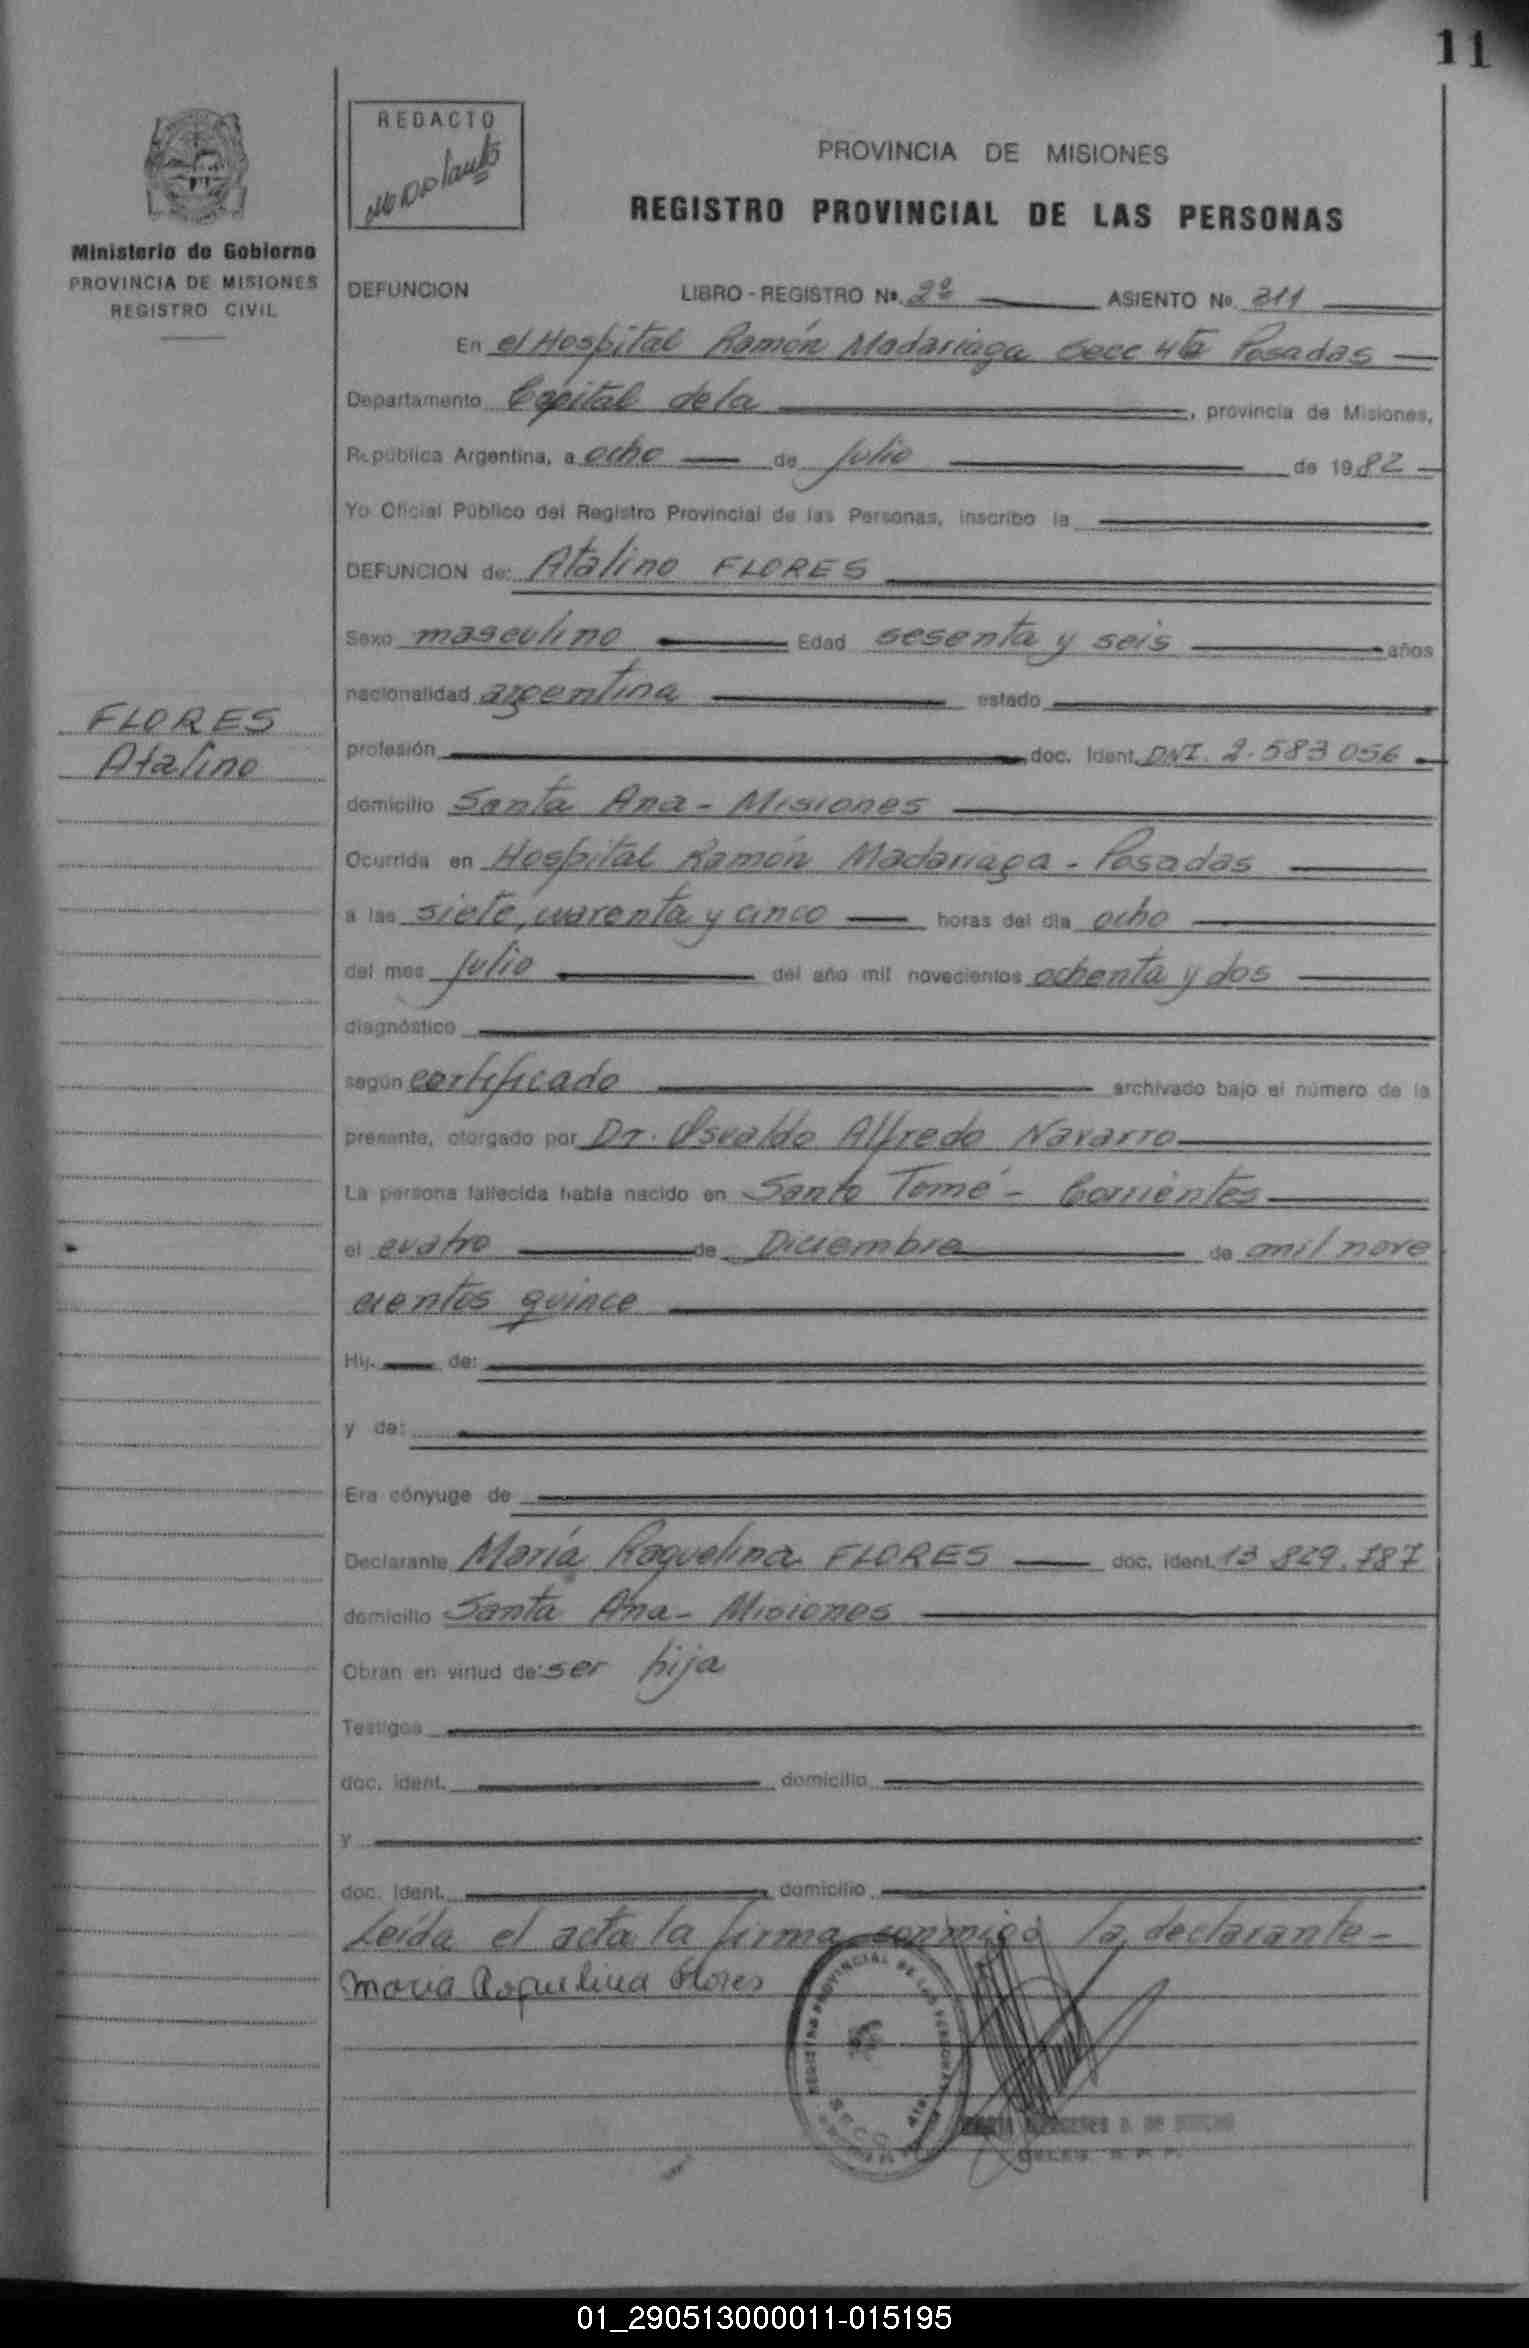 11
REDACTO
PROVINCIA DE MISIONES
REGISTRO PROVINCIAL DE LAS PERSONAS
Ministerio de Gobierno
PROVINCIA DE MISIONES
REGISTRO CIVIL
DEFUNCION LIBRO - REGISTRO Nº. 2º ASIENTO Nº. 311
En el Hospital Ramón Madariaga Secc 4ta Posadas
Departamento Capital de la, provincia de Misiones,
República Argentina, a ocho de Julio de 1982
Yo Oficial Público del Registro Provincial de las Personas, inscribo la
DEFUNCION de: Atalino FLORES
Sexo masculino Edad sesenta y seis años
nacionalidad argentina estado
FLORES
Atalino
profesión doc. Ident. DNI. 2.583 056
domicilio Santa Ana - Misiones
Ocurrida en Hospital Ramón Madariaga - Posadas
a las siete, cuarenta y cinco horas del día ocho
del mes Julio del año mil novecientos ochenta y dos
diagnóstico
según certificado archivado bajo el número de la
presente, otorgado por Dr. Osvaldo Alfredo Navarro
La persona fallecida había nacido en Santo Tomé - Corrientes
el cuatro de Diciembre de mil nove
cientos quince
Hij. de:
y de:
Era cónyuge de
Declarante María Raquelina FLORES doc. ident. 13 829.787
domicilio Santa Ana - Misiones
Obran en virtud de: ser hija
Testigos
doc. ident. domicilio
y
doc. ident. domicilio
Leída el acta la firma conmigo la declarante -
Maria Raquelina Flores
REGISTRO PROVINCIAL DE LAS PERSONAS
01_290513000011-015195